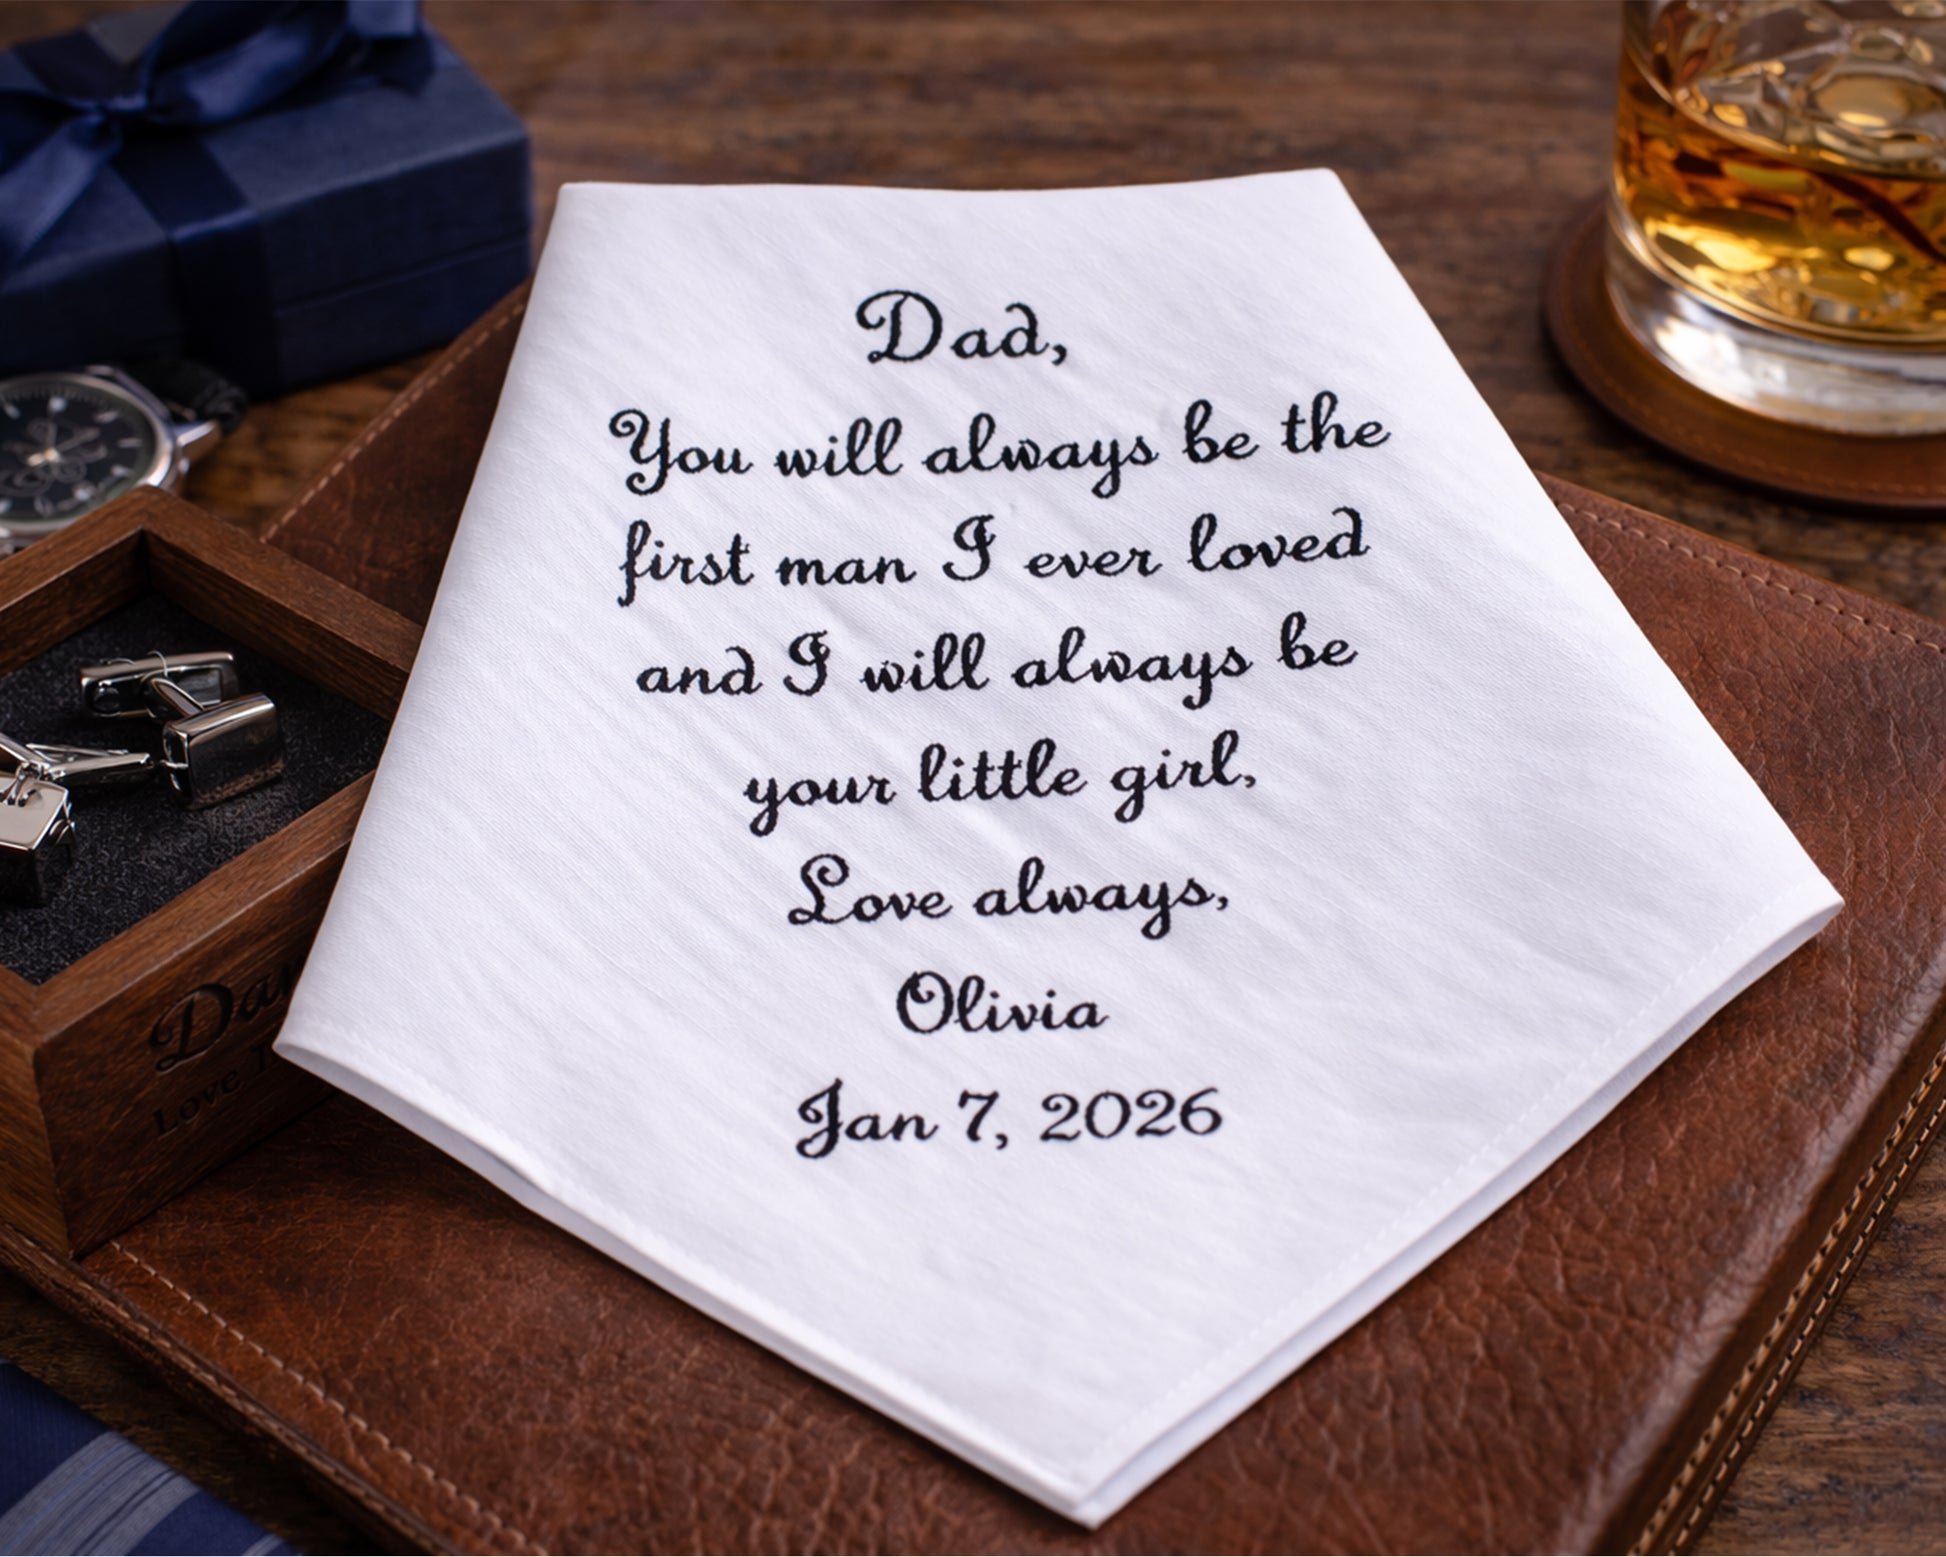 Dad,
You will always be the
first man I ever loved
and I will always be
your little girl,
Love always,
Olivia
Jan 7, 2026
Love